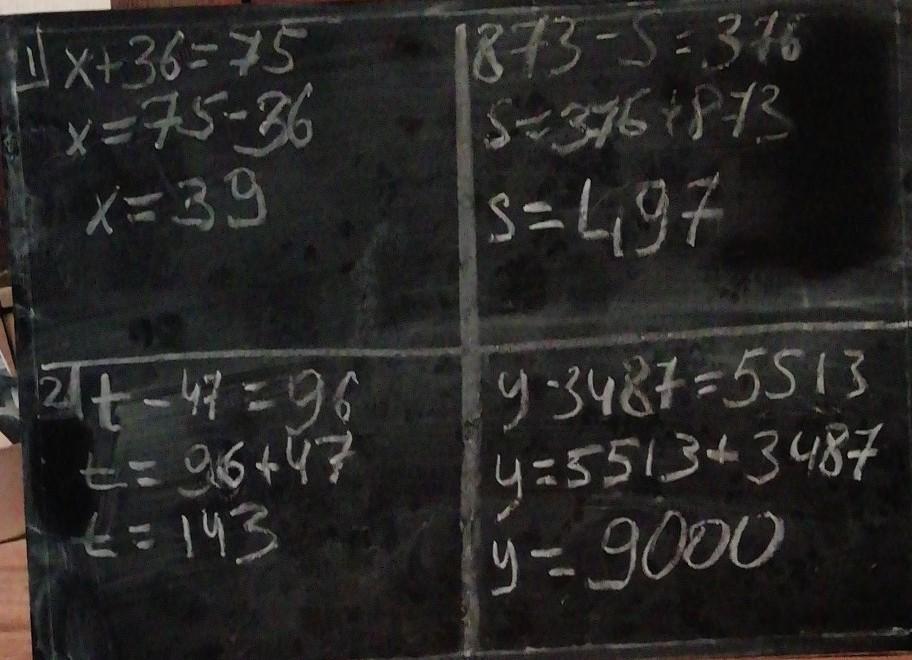 1) x+36=75
x=75-36
x=39
873-S=376
S=376+873
S=497
2) t-47=96
t=96+47
t=143
y-3487=5513
y=5513+3487
y=9000